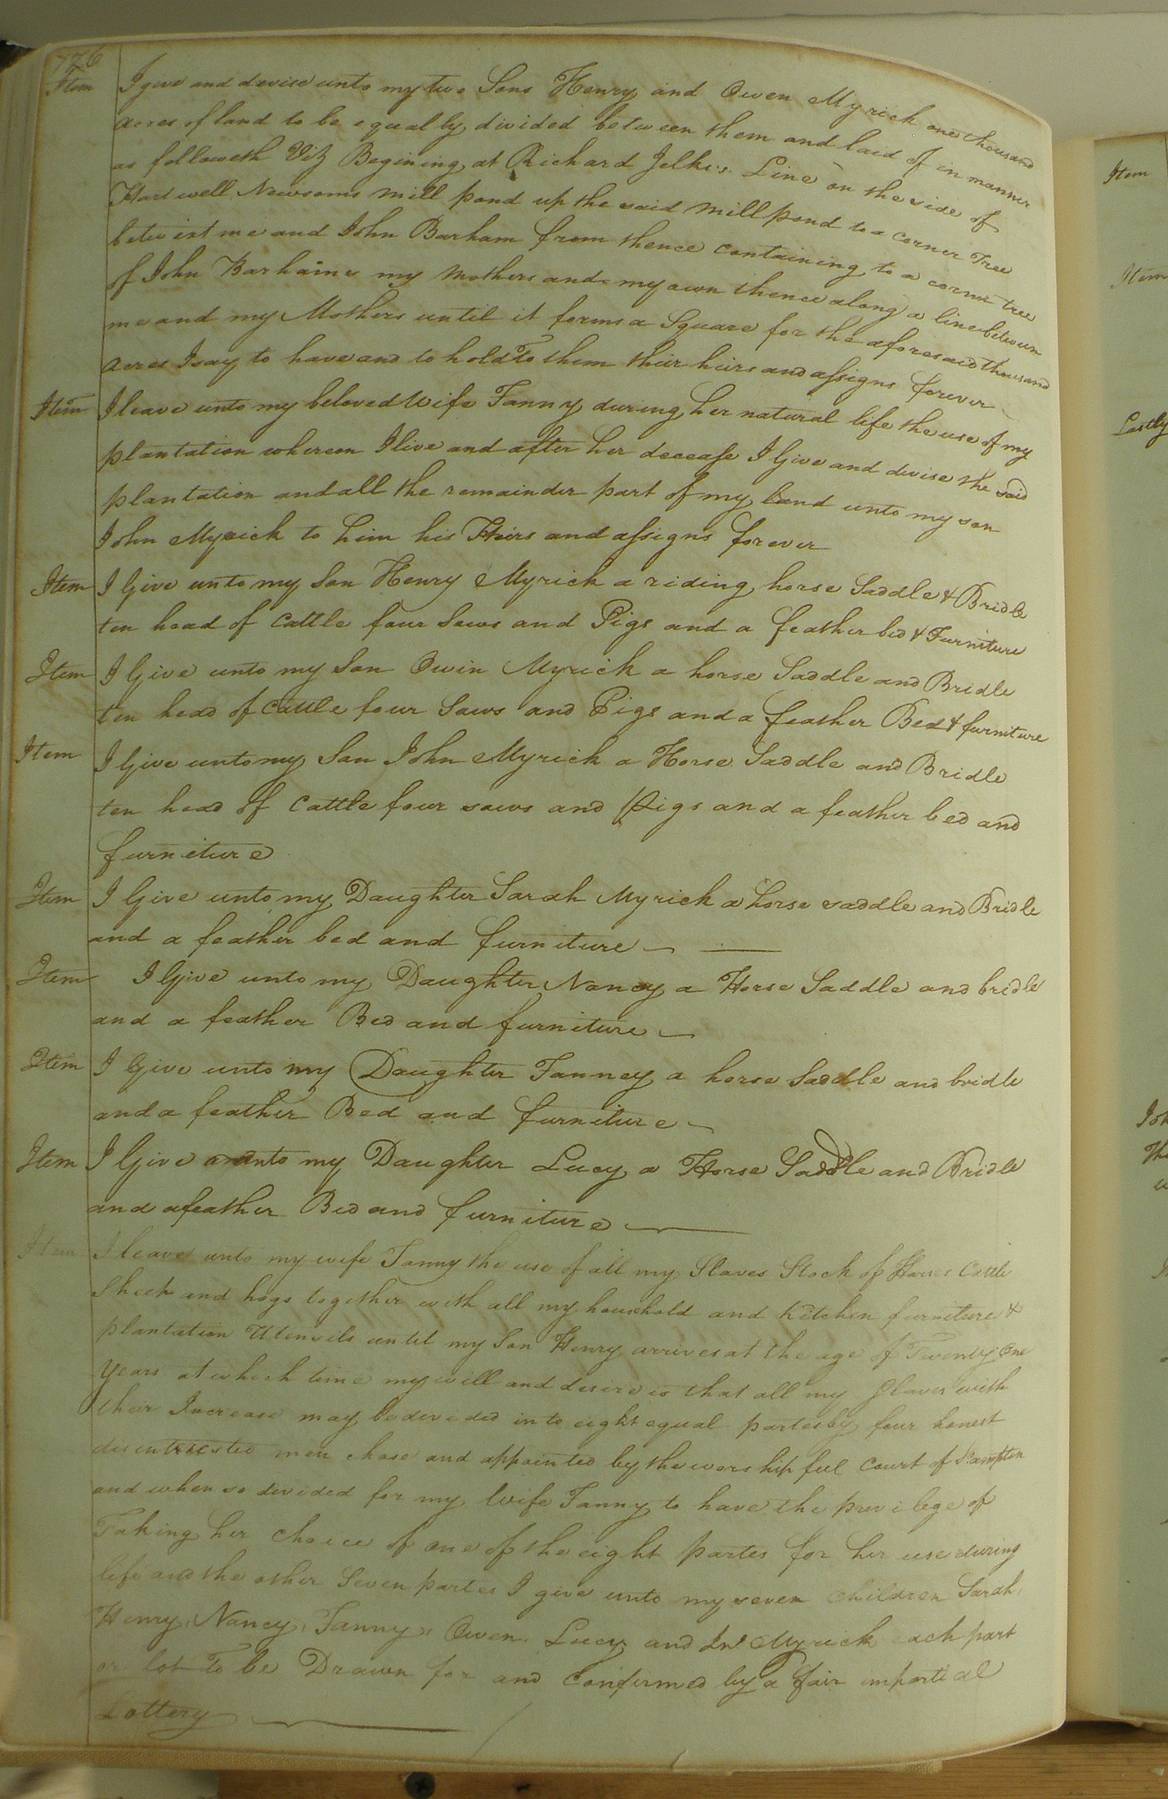 776
Item I give and devise unto my two Sons Henry and Owen Myrick one thousand
acres of land to be equally divided between them and laid of in manner
as followeth Viz Begining at Richard Jelks's Line on the side of
Hartwell Newsoms mill pond up the said mill pond to a corner Tree
betwixt me and John Barham from thence containing to a corner tree
of John Barhams my Mothers and my own thence along a line between
me and my Mothers until it forms a Square for the aforesaid thousand
Acres I say to have and to hold To them their heirs and assigns forever
Item I leave unto my beloved Wife Fanny during her natural life the use of my
plantation whereon I live and after her decease I Give and devise the said
plantation and all the remainder part of my land unto my son
John Myrick to him his Heirs and assigns forever
Item I Give unto my Son Henry Myrick a riding horse Saddle & Bridle
ten head of Cattle four Sows and Pigs and a feather bed & Furniture
Item I Give unto my Son Owin Myrick a horse Saddle and Bridle
ten head of Cattle four Sows and Pigs and a feather Bed & furniture
Item I Give unto my Son John Myrick a Horse Saddle and Bridle
ten head of Cattle four sows and Pigs and a feather bed and
furniture
Item I Give unto my Daughter Sarah Myrick a horse saddle and Bridle
and a feather bed and furniture
Item I Give unto my Daughter Nancy a Horse Saddle and bridle
and a feather Bed and furniture
Item I Give unto my Daughter Fanney a horse Saddle and bridle
and a feather Bed and furniture
Item I Give unto my Daughter Lucy a Horse Saddle and Bridle
and a feather Bed and furniture
Item I leave unto my wife Fanny the use of all my Slaves Stock of Horses Cattle
Sheep and hogs together with all my household and Kitchin furniture &
plantation Utensils until my Son Henry arrives at the age of Twenty One
Years at which time my will and desire is that all my Slaves with
their Increase may be devided into eight equal partes by four honest
disentrested men chose and appointed by the worshipful Court of S.ampton
and when so devided for my Wife Fanny to have the previlege of
Taking her choice of one of the eight partes for her use during
life and the other Seven partes I give unto my seven children Sarah,
Henry, Nancy, Fanny, Owen, Lucy and Jno Myrick each part
or lot To be Drawn for and Confirmed by a fair impartial
Lottery
Item
Item
Lastly